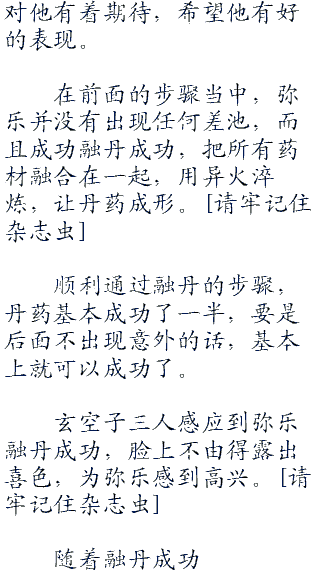 对他有着期待，希望他有好
的表现。
在前面的步骤当中，弥
乐并没有出现任何差池，而
且成功融丹成功，把所有药
材融合在一起，用异火淬
炼，让丹药成形。[请牢记住
杂志虫]
顺利通过融丹的步骤，
丹药基本成功了一半，要是
后面不出现意外的话，基本
上就可以成功了。
玄空子三人感应到弥乐
融丹成功，脸上不由得露出
喜色，为弥乐感到高兴。[请
牢记住杂志虫]
随着融丹成功